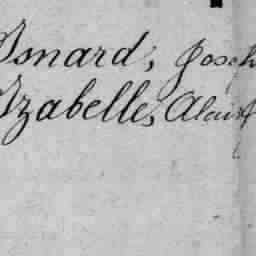 Isnard, Joseph
Izabelle, Alain